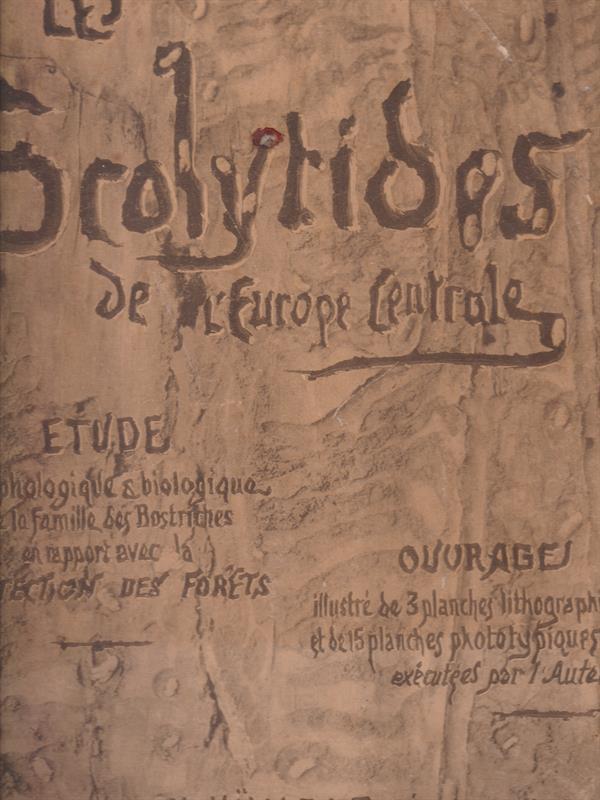 LES
Scolytides
de l'Europe Centrale
ETUDE
phologique & biologique
la famille des Bostriches
en rapport avec la
TECTION DES FORÊTS
OUVRAGE
illustré de 3 planches lithographi
et de 15 planches phototypiques
exécutées par l'Aute